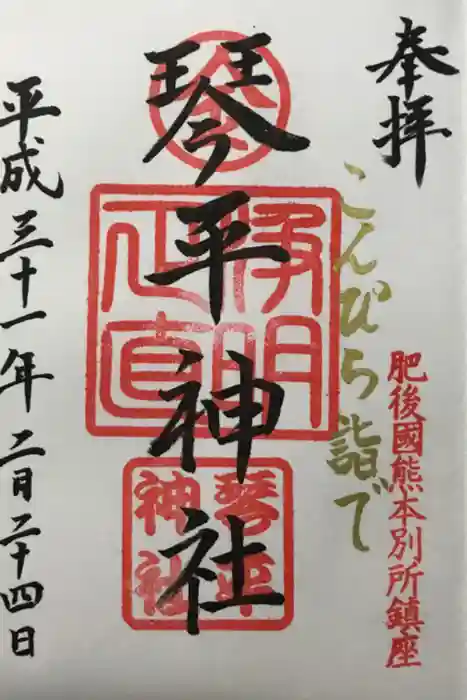 奉拝
肥後國熊本別所鎮座
こんぴら詣で
琴平神社
浄明
正直
琴平
神社
平成三十一年二月二十四日